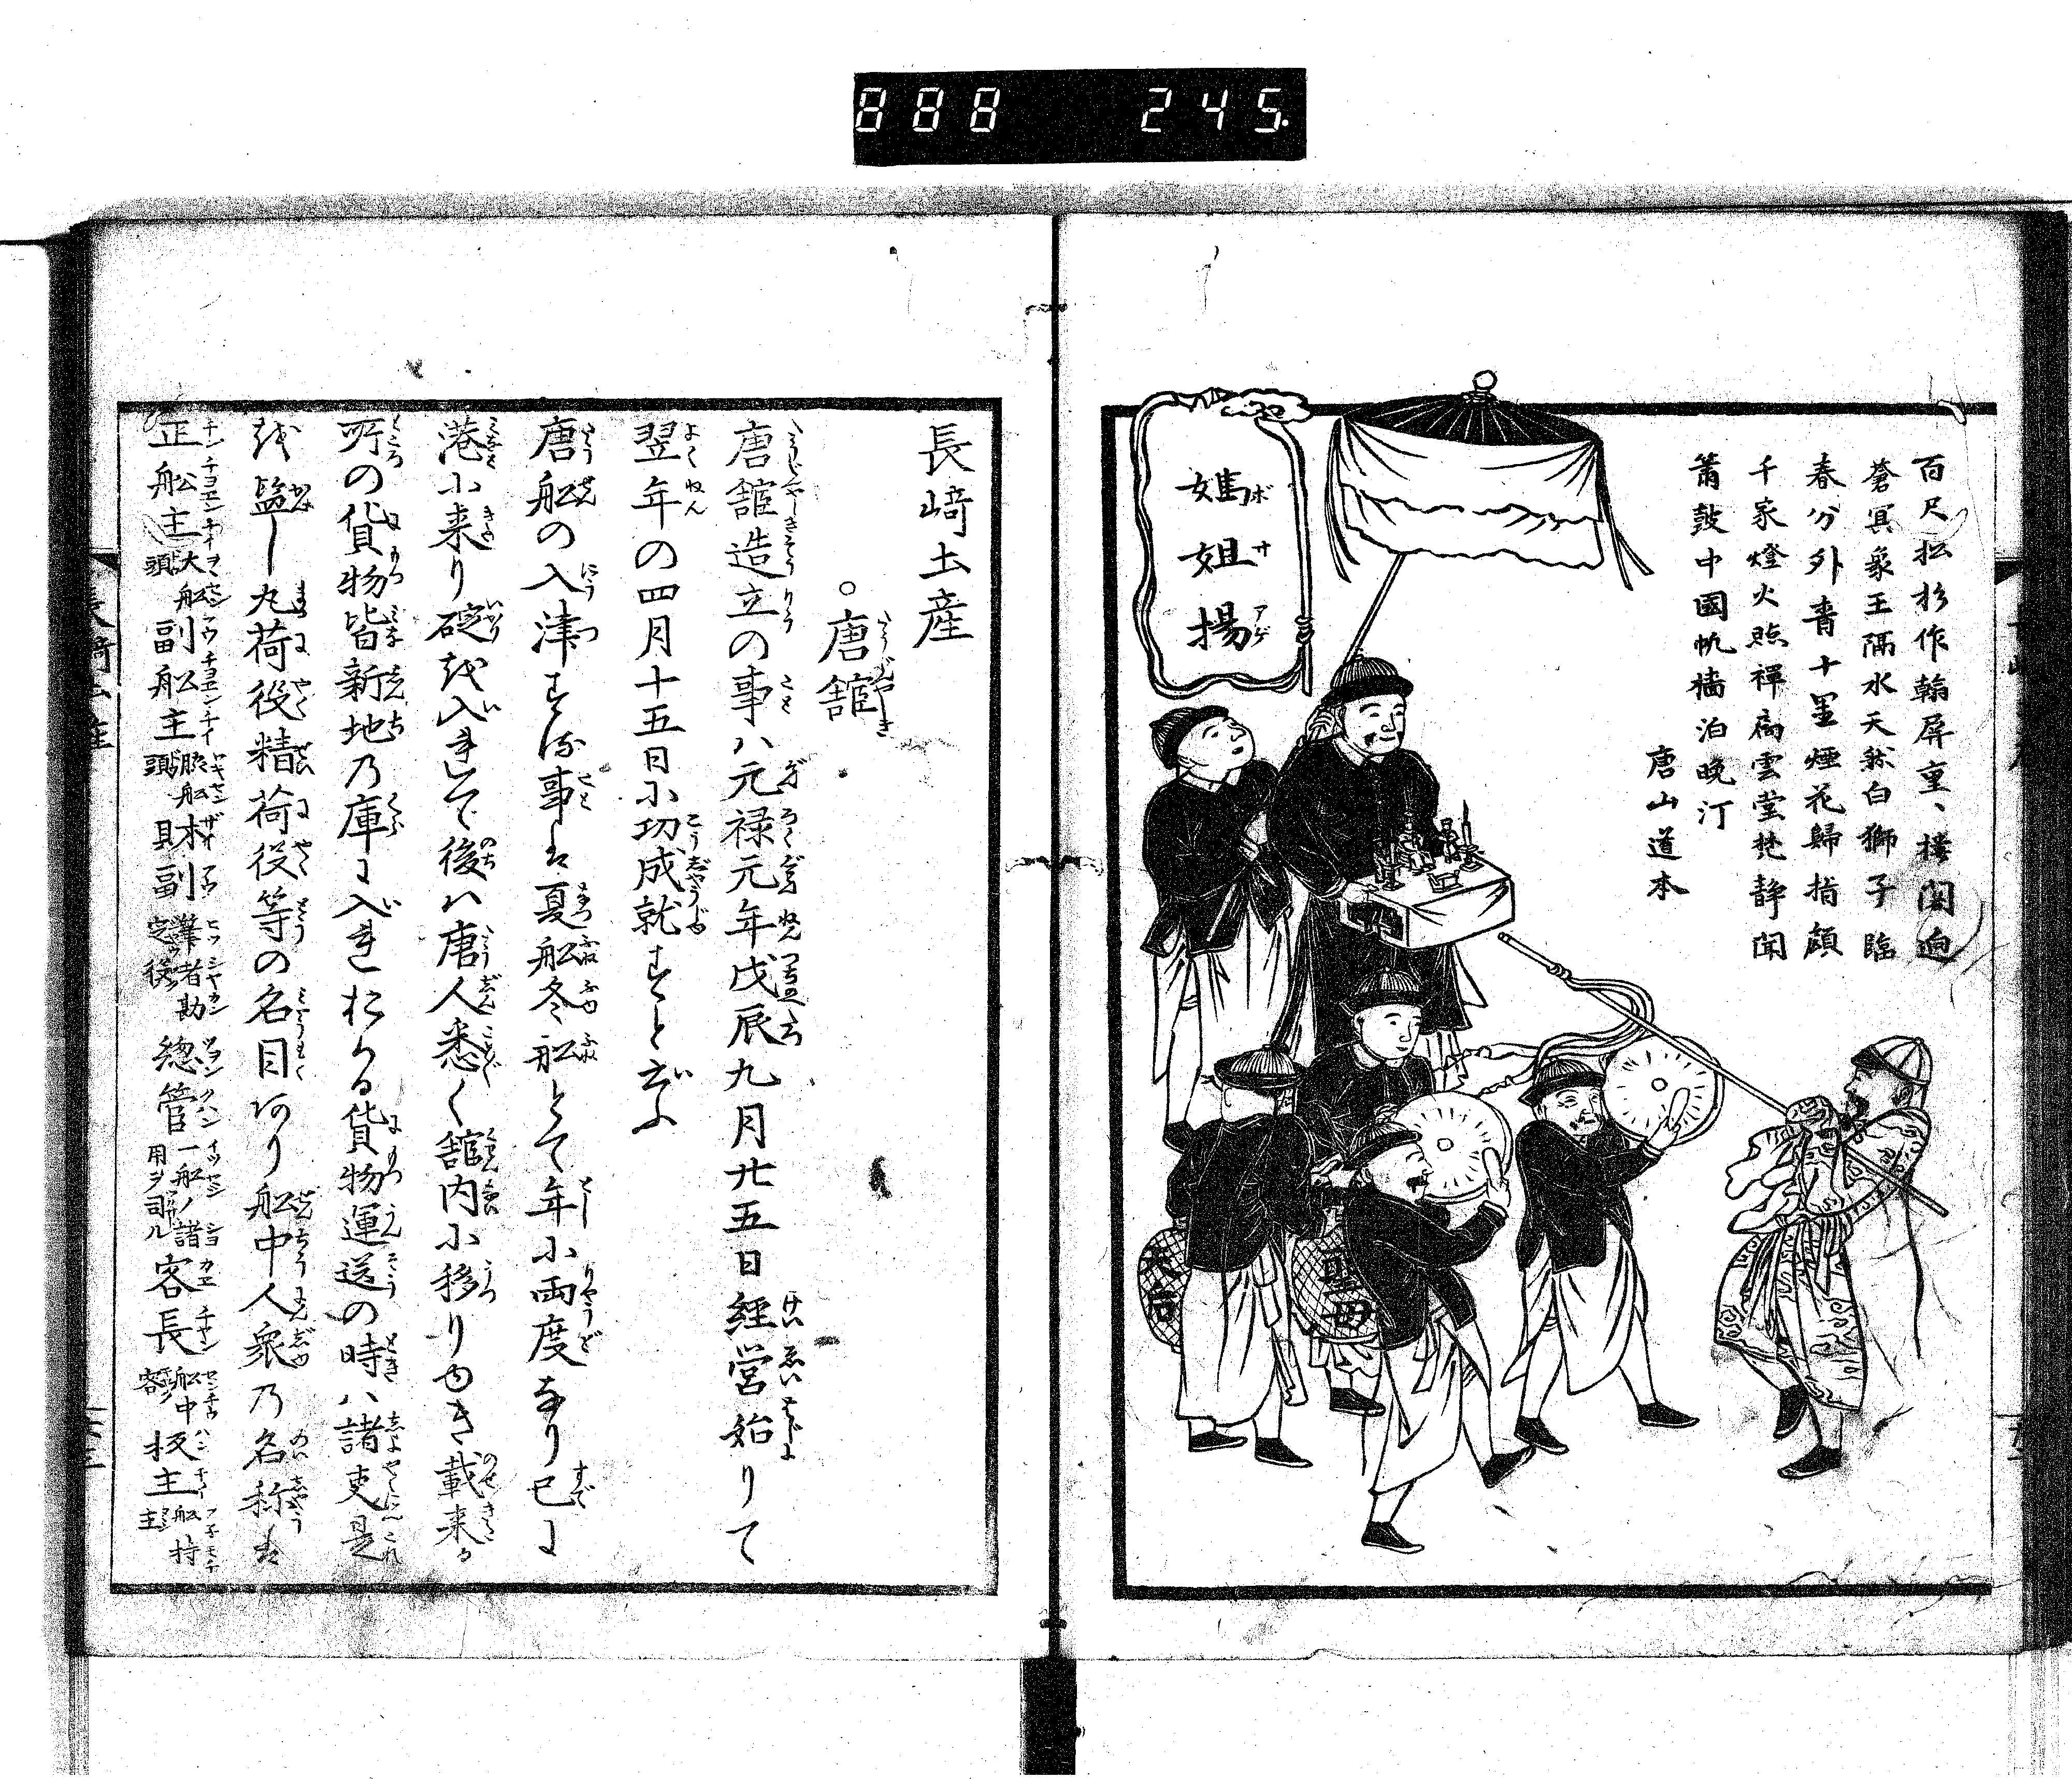 888 245.
百尺松杉作翰屏重〻樓閣迥
蒼冥象王隔水天然白獅子臨
春分外青十里煙花歸指顧
千家燈火照禪扃雲堂梵静聞
簫鼓中國帆檣泊晩汀
唐山道本
媽姐揚
ボサアゲ
長﨑土産
○唐舘
唐舘造立の事ハ元禄元年戊辰九月廿五日経営始りて
翌年の四月十五日小功成就すと云ふ
唐舩の入津する事は夏舩冬舩とて年小両度なり已に
港小来り碇を入れて後ハ唐人悉く舘内小移りゆき載来る
所の貨物皆新地乃庫に入れおくる貨物運送の時ハ諸吏是
を監し丸荷役精荷役等の名目あり舩中人衆乃名称は
正舩主大舩頭副舩主脇舩頭財副筆者勘定役総管一舩ノ諸用ヲ司ル客長舩中客板主舩持主